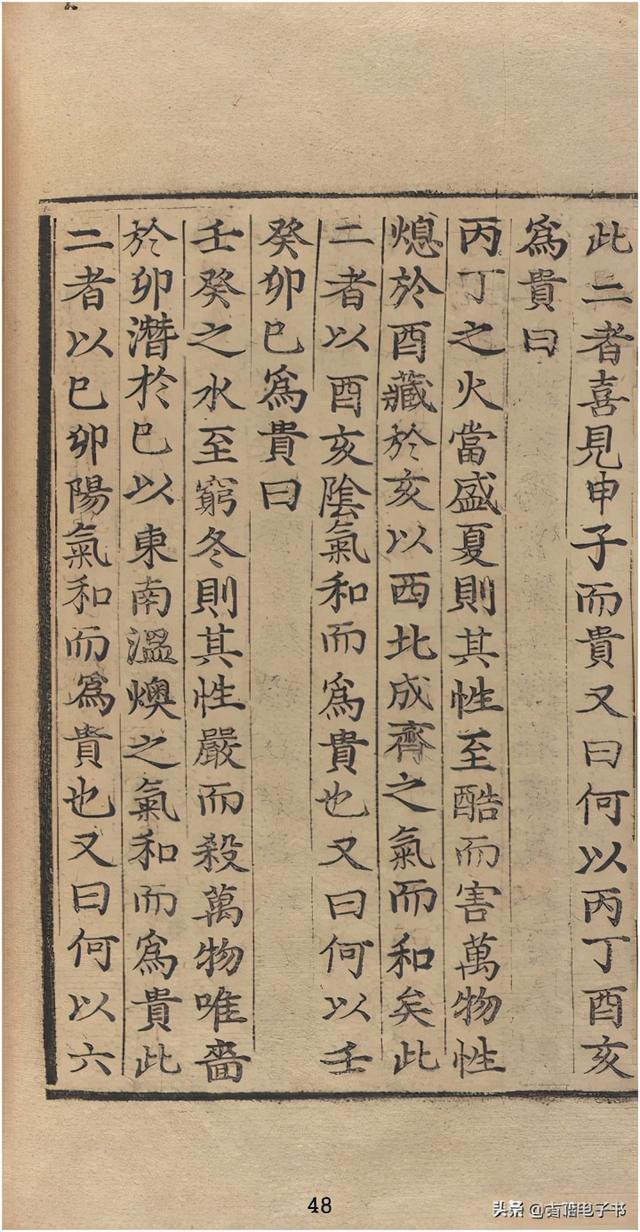 此二者喜見申子而貴又曰何以丙丁酉亥
為貴曰
丙丁之火當盛夏則其性至酷而害萬物性
熄於酉藏於亥以西北成齊之氣而和矣此
二者以酉亥陰氣和而為貴也又曰何以壬
癸卯巳為貴曰
壬癸之水至窮冬則其性嚴而殺萬物唯嗇
於卯潛於巳以東南溫燠之氣和而為貴此
二者以巳卯陽氣和而為貴也又曰何以六
48
头条 @古籍电子书